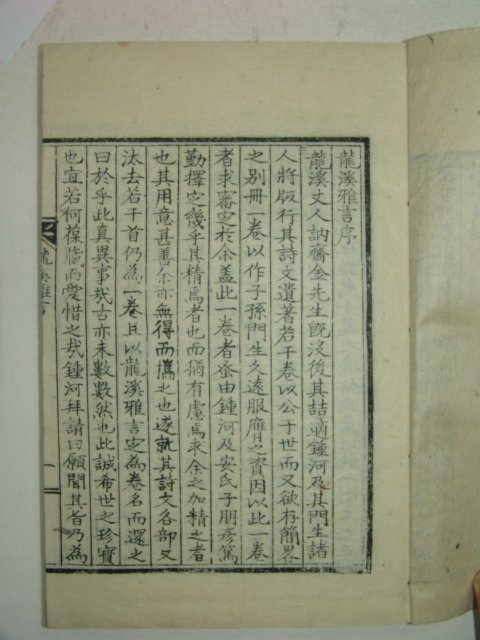 龍溪雅言序
龍溪丈人訥齋金先生旣沒後其喆適鍾河及其門生諸
人將版行其詩文遺著若干卷以公于世而又欲存簡畧
之別冊一卷以作子孫門生久遠服膺之資因以此一卷
者求審定於余盖此一卷者蚤由鍾河及安氏子朋彦篤
勤擇定幾乎其精焉者也而猶有慮焉求余之加精之者
也其用意甚善余亦無得而攜之也遂就其詩文各部又
汰去若干首仍為一卷且以龍溪雅言定為卷名而還之
曰於乎此真異事㢤古亦未數數然也此誠希世之珍寶
也宜若何葆臧而愛惜之㢤鍾河拜請曰願聞其旨乃為
龍溪雅言